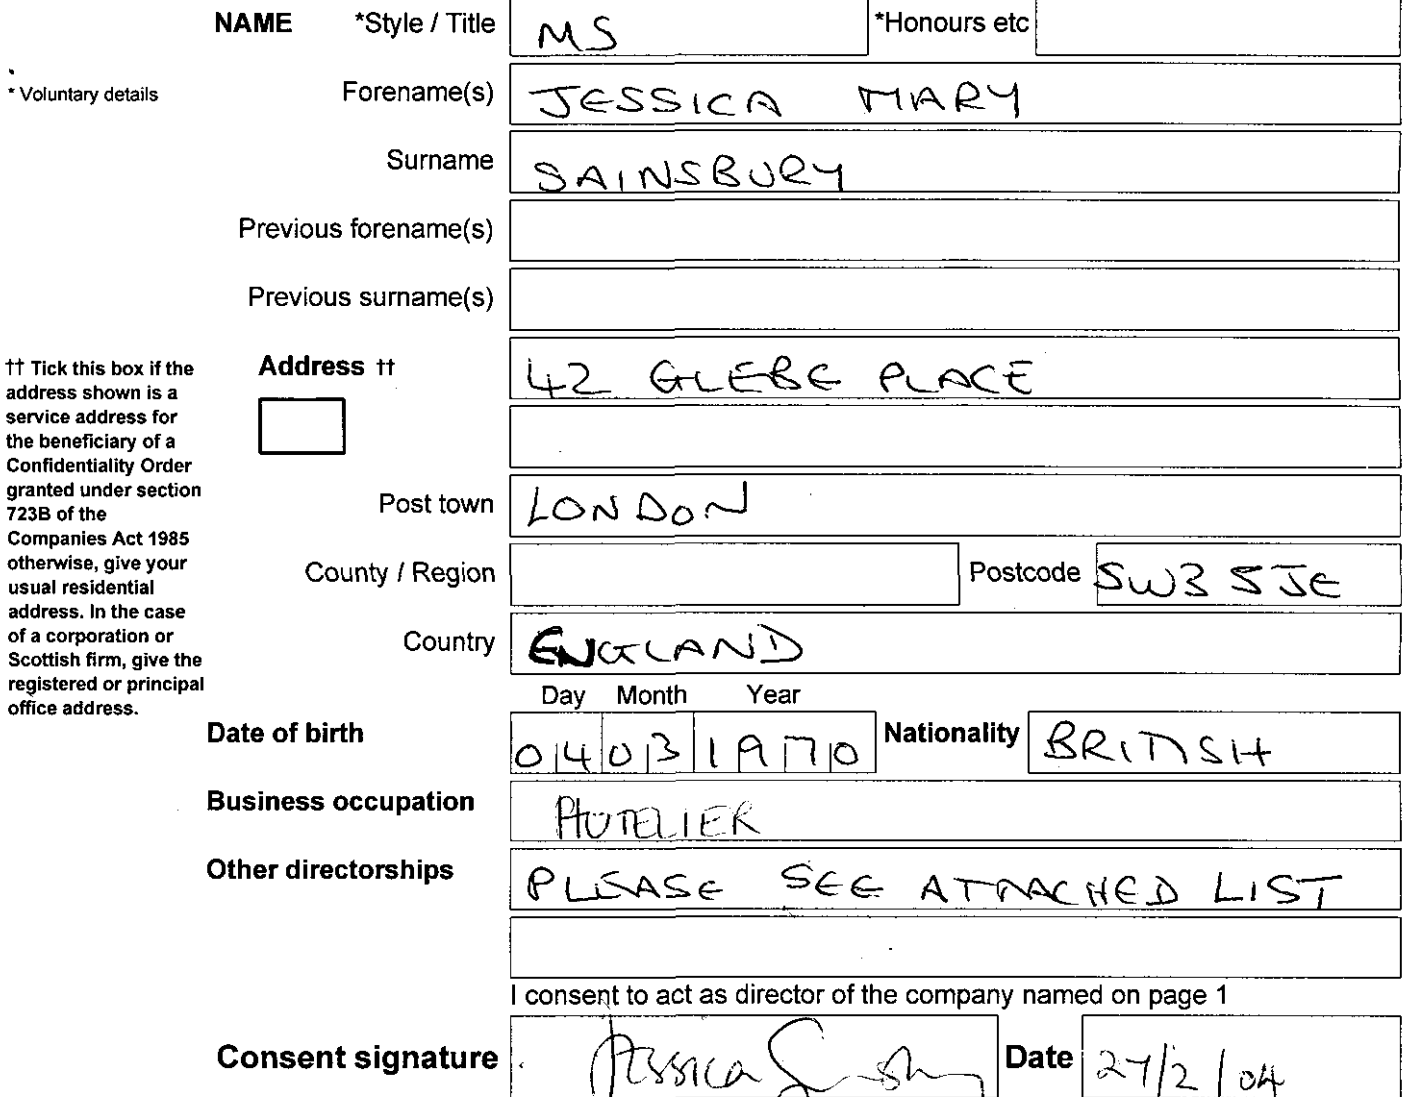 NAME *Style / Title MS *Honours etc
* Voluntary details Forename(s) JESSICA MARY
Surname SAINSBURY
Previous forename(s)
Previous surname(s)
†† Tick this box if the
address shown is a
service address for
the beneficiary of a
Confidentiality Order
granted under section
723B of the
Companies Act 1985
otherwise, give your
usual residential
address. In the case
of a corporation or
Scottish firm, give the
registered or principal
office address.
Address †† 42 GLEBE PLACE
Post town LONDON
County / Region Postcode SW3 5JE
Country ENGLAND
Day Month Year
Date of birth 04 03 1970 Nationality BRITISH
Business occupation HOTELIER
Other directorships PLEASE SEE ATTACHED LIST
I consent to act as director of the company named on page 1
Consent signature Jessica Sainsbury Date 27/2/04